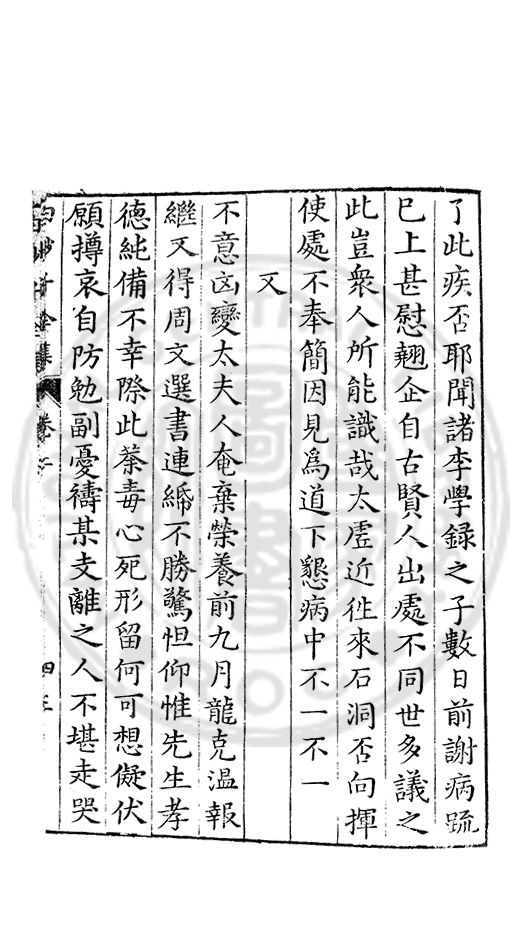 了此疾否耶聞諸李學録之子數日前謝病䟽
已上甚慰翹企自古賢人出處不同世多議之
此豈衆人所能識哉太虗近徃來石洞否向揮
使處不奉簡因見爲道下懇病中不一不一
又
不意凶變太夫人奄棄榮養前九月龍克温報
繼又得周文選書連綈不勝驚怛仰惟先生孝
德純備不幸際此荼毒心死形留何可想儗伏
願撙哀自防勉副憂禱某支離之人不堪走哭
白沙子全集 卷二